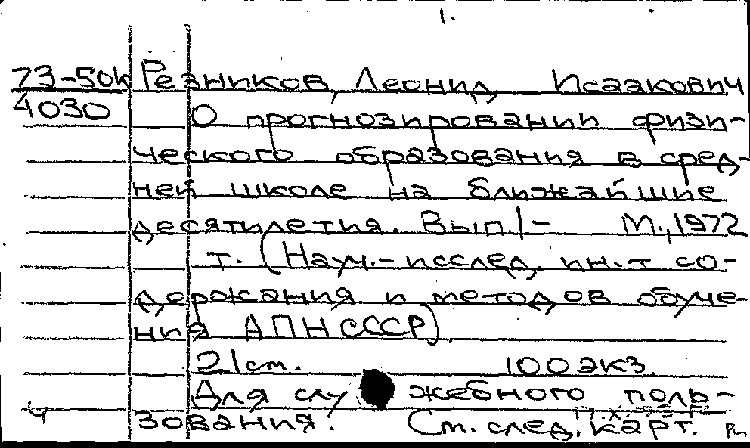 1.
73-50к Резников, Леонид Исаакович
4030 О прогнозировании физи-
ческого образования в сред-
ней школе на ближайшие
десятилетия. Вып 1- М., 1972
т. (Науч.-исслед. ин-т со-
держания и методов обуче-
ния АПН СССР)
21см. 100 экз.
Для служебного поль-
зования. См. след. карт.